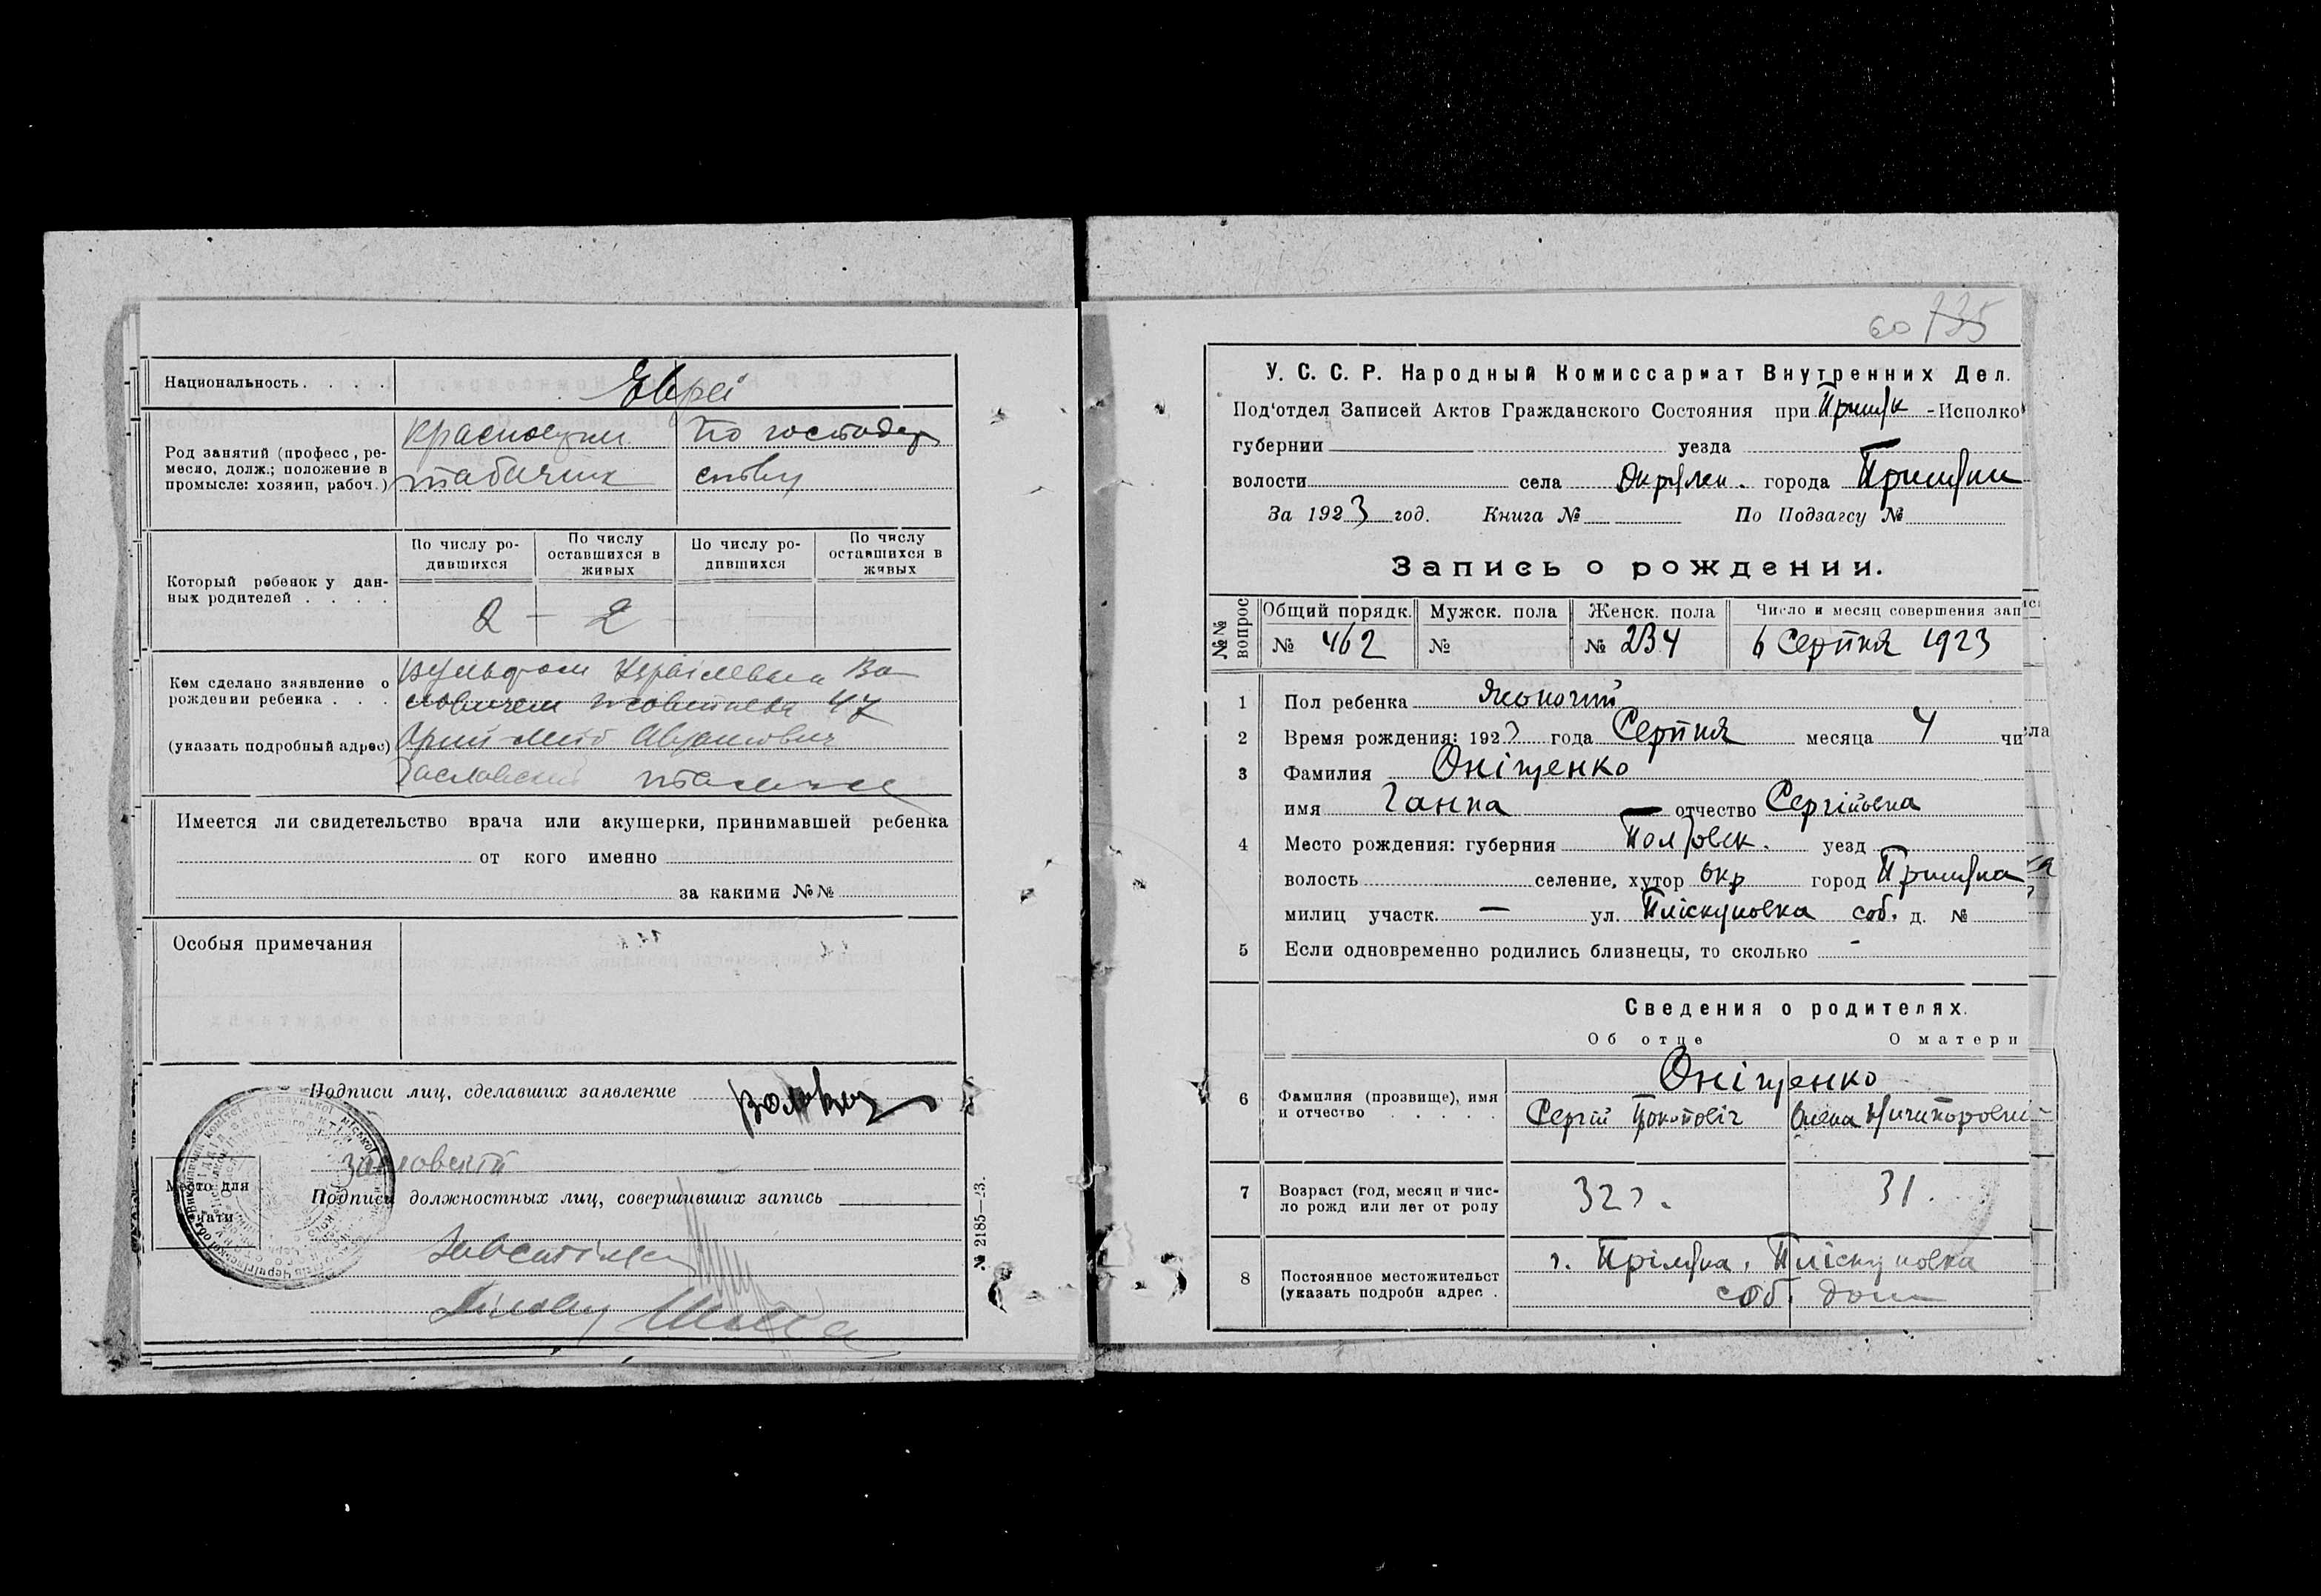 Национальность . . . .
Евреї
Род занятий (професс, ре-
месло, долж.; положение в
промысле: хозяин, рабоч.)
табачник
по господар
ству
Который ребенок у дан-
ных родителей . . . .
По числу ро-
дившихся
По числу
оставшихся в
живых
По числу ро-
дившихся
По числу
оставшихся в
живых
2 — 2
Кем сделано заявление о
рождении ребенка . . .
(указать подробный адрес)
47
Имеется ли свидетельство врача или акушерки, принимавшей ребенка
от кого именно
за какими №№
Особыя примечания
Подписи лиц, сделавших заявление
Заславский
Место для
печати
Подписи должностных лиц, совершивших запись
№ 2185—23.
60 735
У. С. С. Р. Народный Комиссариат Внутренних Дел.
Под'отдел Записей Актов Гражданского Состояния при Прилук -Исполко
губернии уезда
волости села Округи . города Прилуки
За 1923 год. Книга № По Подзагсу №
Запись о рождении.
№№
вопрос
Общий порядк. Мужск. пола Женск. пола Число и месяц совершения зап
№ 462 № № 234 6 Серпня 1923
1 Пол ребенка жіночий
2 Время рождения: 1923 года Серпня месяца 4 чи
3 Фамилия Оніщенко
имя Ганна — отчество Сергіївна
4 Место рождения: губерния Полтовск. уезд
волость селение, хутор окр город Прилука
милиц участк. — ул. Пліскуновка соб. д. №
5 Если одновременно родились близнецы, то сколько -
Сведения о родителях.
Об отце О матери
Оніщенко
6 Фамилия (прозвище), имя
и отчество . . . . .
Сергій Прокопович Олена Ничипоровна
7 Возраст (год, месяц и чис-
ло рожд или лет от роду
32 г. 31.
8 Постоянное местожительст
(указать подробн адрес .
г. Прілука, Пліскуновка
соб. дом